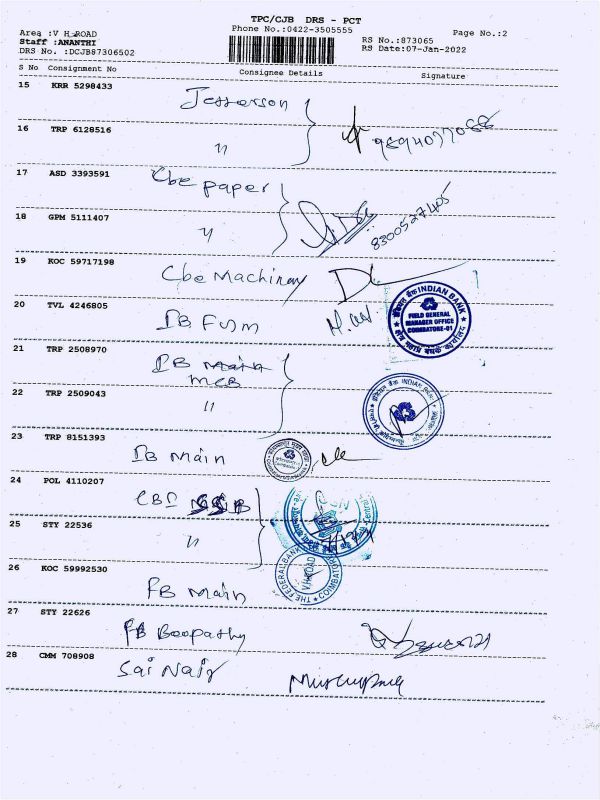 TPC/CJB DRS - PCT
Phone No.:0422-3505555
Page No.:2
Area :V H ROAD
Staff :ANANTHI
DRS No. :DCJB87306502
RS No.:873065
RS Date:07-Jan-2022
S No Consignment No Consignee Details Signature
15 KRR 5298433 Jefferson
16 TRP 6128516 "
17 ASD 3393591 Cbe paper
18 GPM 5111407 "
8300527405
19 KOC 59717198 Cbe Machinery
20 TVL 4246805 IB FGM
INDIAN BANK
FIELD GENERAL
MANAGER OFFICE
COIMBATORE-01
21 TRP 2508970 IB Main
MCB
22 TRP 2509043 "
INDIAN BANK
23 TRP 8151393 IB Main
24 POL 4110207 CBI
25 STY 22536 "
26 KOC 59992530 FB Main
THE FEDERAL BANK
V.H.ROAD
COIMBATORE
27 STY 22626 FB Boopathy
28 CMM 708908 Sai Nair